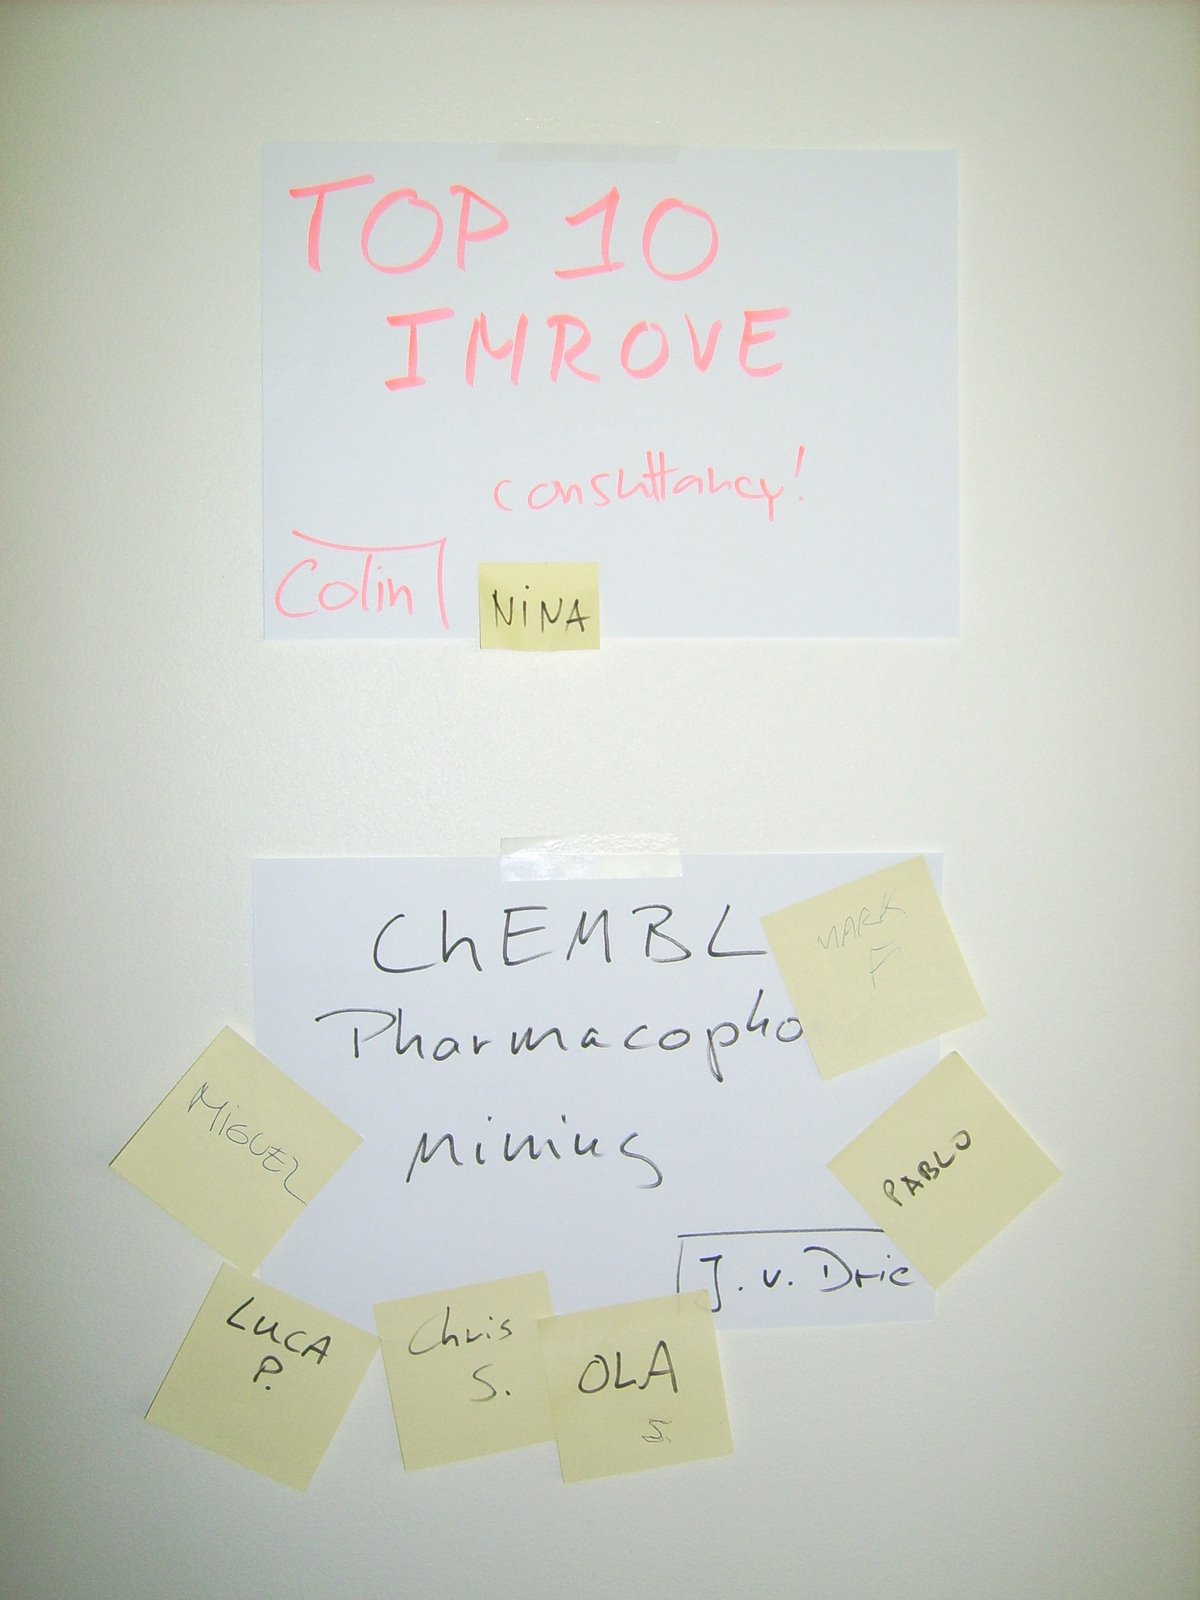 TOP 10
IMROVE
consultancy!
Colin
NINA
ChEMBL
Pharmacopho
mining
J. v. Drie
MARK
F
PABLO
MIGUEL
LUCA
P.
Chris
S.
OLA
S.